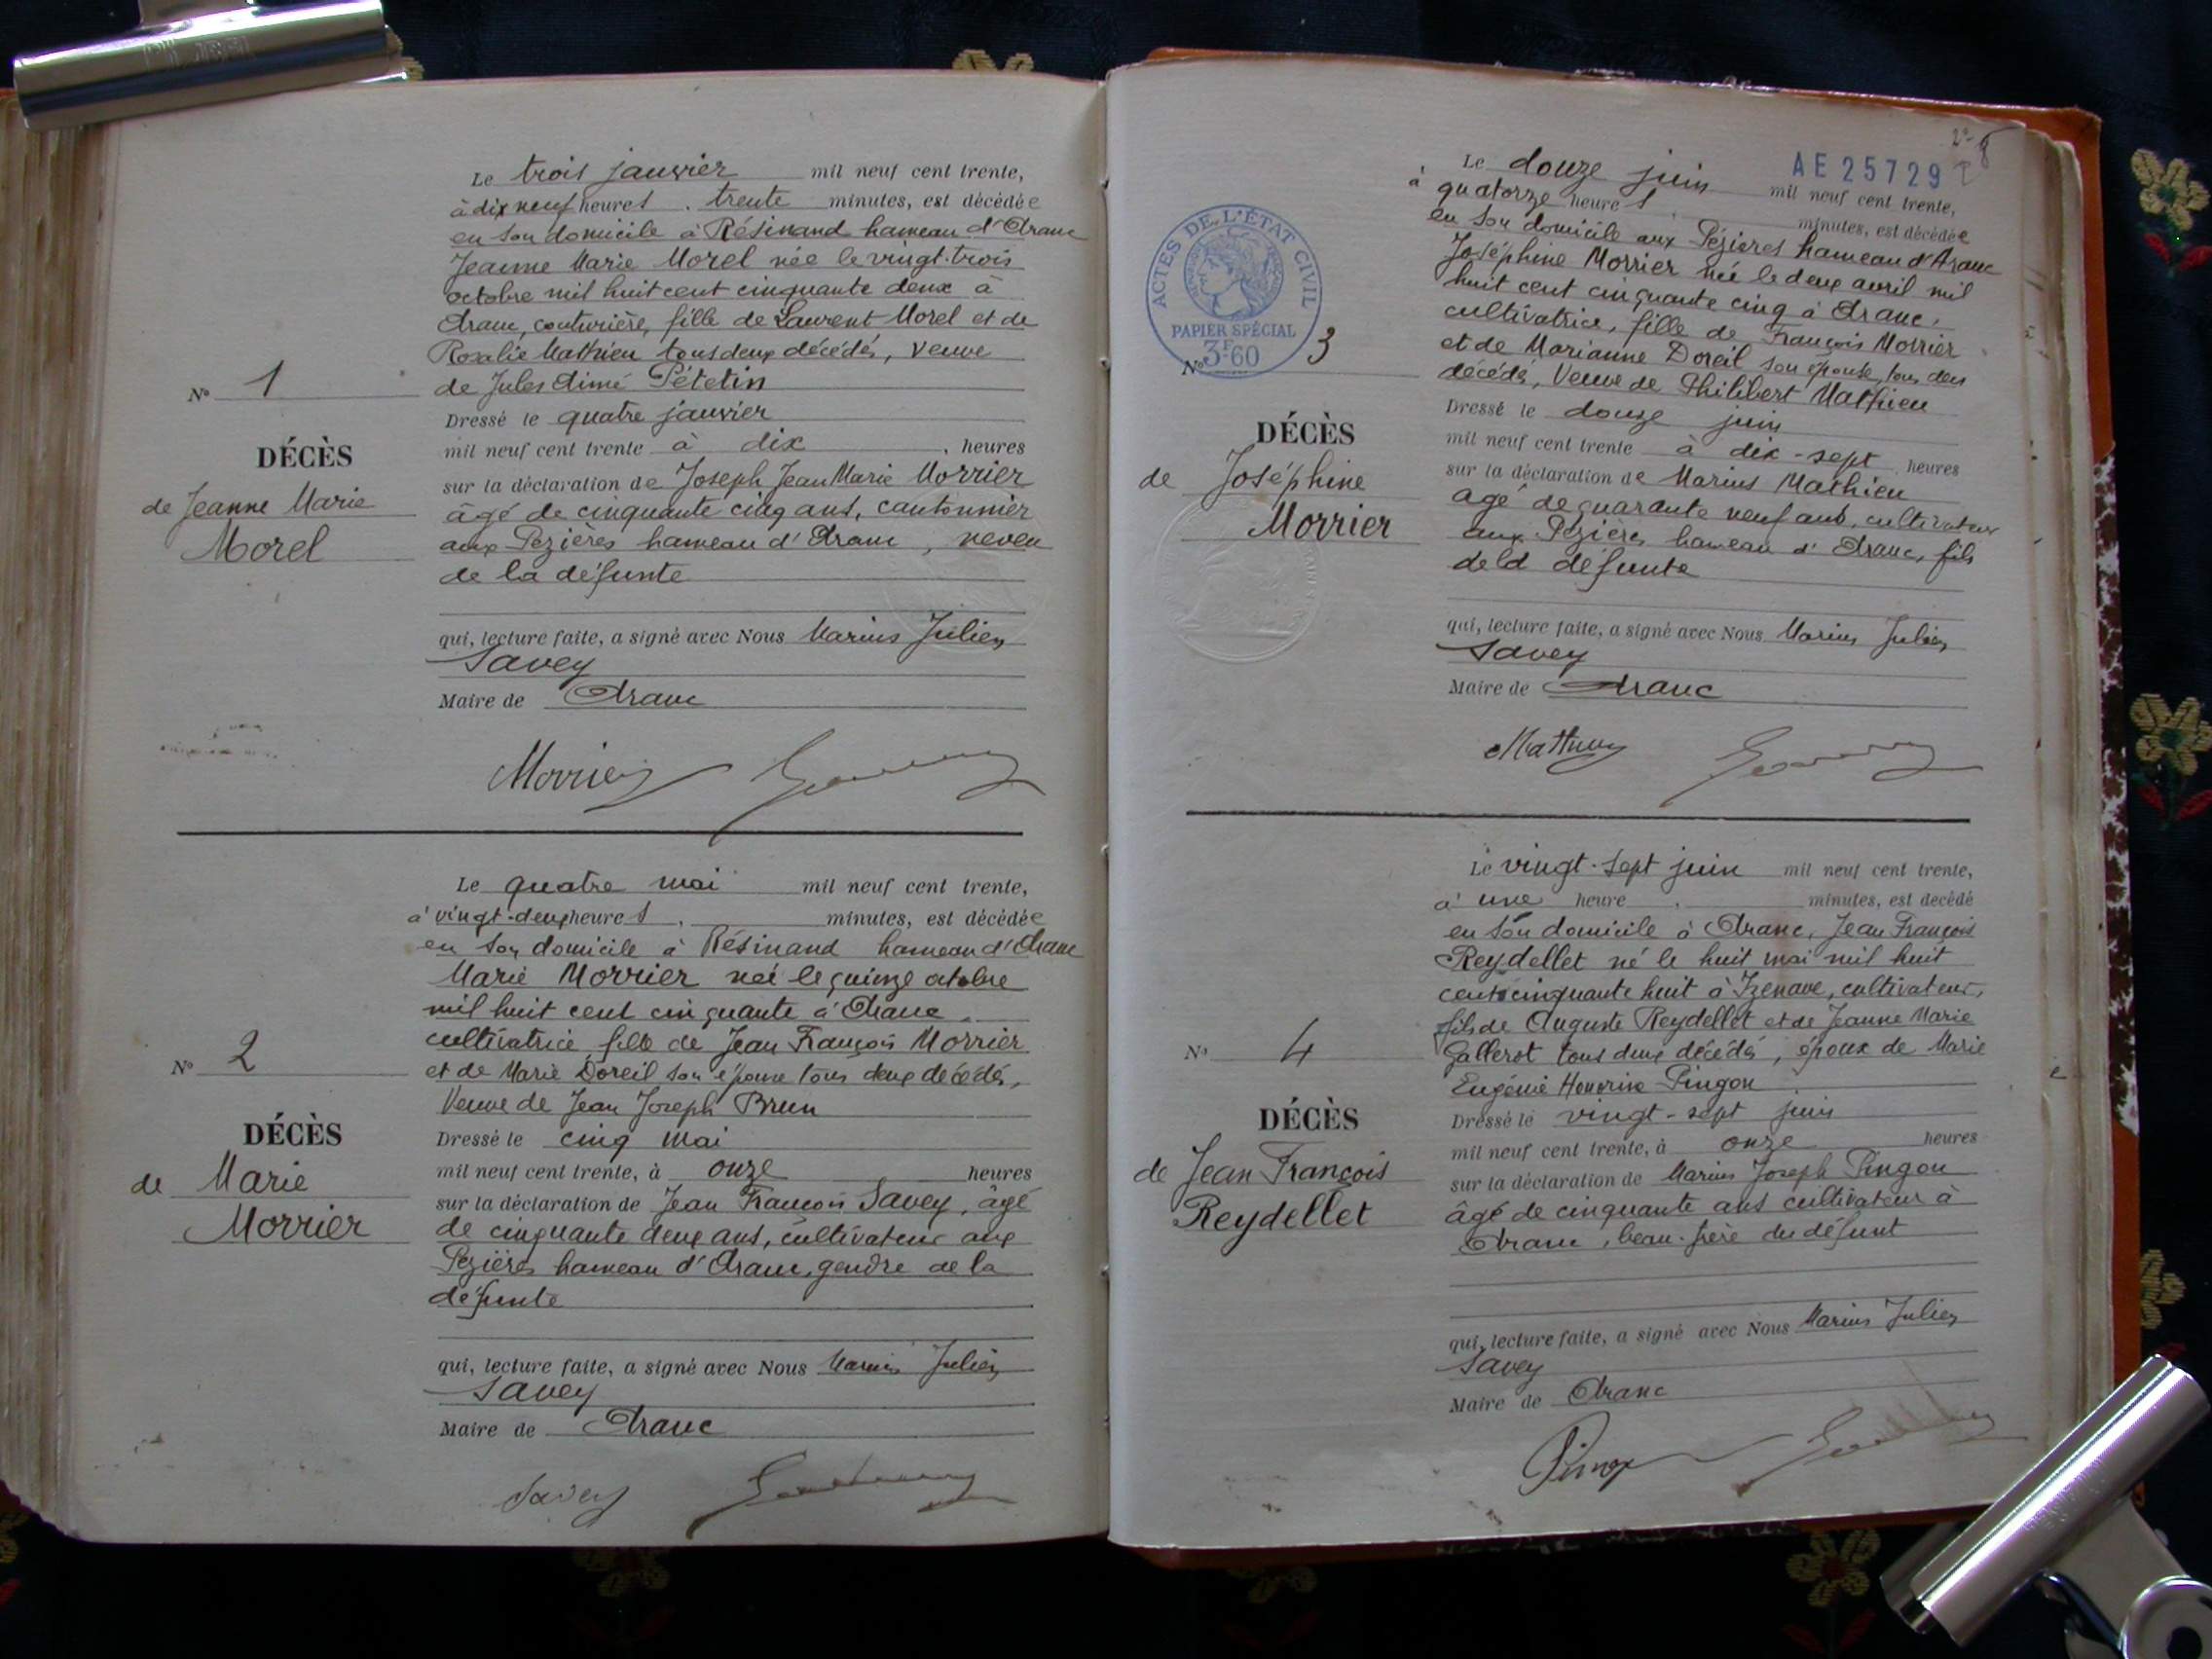 Le trois janvier mil neuf cent trente,
à dix neuf heures . trente minutes, est décédée
en son domicile à Résinand hameau d'Aranc
Jeanne Marie Morel née le vingt-trois
octobre mil huit cent cinquante deux à
Aranc, couturière, fille de Laurent Morel et de
Rosalie Mathieu tous deux décédés, veuve
de Jules Aimé Pétetin
Dressé le quatre janvier
mil neuf cent trente à dix , heures
sur la déclaration de Joseph Jean Marie Morrier
âgé de cinquante cinq ans, cantonnier
aux Pezières hameau d'Aranc, neveu
de la défunte
qui, lecture faite, a signé avec Nous Marius Julien
Savey
Maire de Aranc
Morrier
N° 1
DÉCÈS
de Jeanne Marie
Morel
Le quatre mai mil neuf cent trente,
à vingt-deux heures . minutes, est décédée
en son domicile à Résinand hameau d'Aranc
Marie Morrier née le quinze octobre
mil huit cent cinquante à Aranc
cultivatrice fille de Jean François Morrier
et de Marie Doreil son épouse tous deux décédés,
Veuve de Jean Joseph Brun
Dressé le cinq mai
mil neuf cent trente, à onze heures
sur la déclaration de Jean François Savey, âgé
de cinquante deux ans, cultivateur aux
Pezières hameau d'Aranc, gendre de la
défunte
qui, lecture faite, a signé avec Nous Marius Julien
Savey
Maire de Aranc
Savey
N° 2
DÉCÈS
de Marie
Morrier
AE 25729
Le douze juin mil neuf cent trente,
à quatorze heures minutes, est décédée
en son domicile aux Pézières hameau d'Aranc
Joséphine Morrier née le deux avril mil
huit cent cinquante cinq à Aranc,
cultivatrice, fille de François Morrier
et de Marianne Doreil son épouse tous deux
décédés, Veuve de Philibert Mathieu
Dressé le douze juin
mil neuf cent trente à dix-sept heures
sur la déclaration de Marius Mathieu
âgé de quarante neuf ans, cultivateur
aux Pézières hameau d'Aranc, fils
de la défunte
qui, lecture faite, a signé avec Nous Marius Julien
Savey
Maire de Aranc
Mathieu
ACTES DE L'ÉTAT CIVIL
RÉPUBLIQUE FRANÇAISE
PAPIER SPÉCIAL
3F60
N° 3
DÉCÈS
de Joséphine
Morrier
Le vingt-sept juin mil neuf cent trente,
à une heure . minutes, est décédé
en son domicile à Aranc, Jean François
Reydellet né le huit mai mil huit
cent cinquante huit à Izenave, cultivateur,
fils de Auguste Reydellet et de Jeanne Marie
Gallerot tous deux décédés, époux de Marie
Eugénie Honorine Pingon
Dressé le vingt-sept juin
mil neuf cent trente, à onze heures
sur la déclaration de Marius Joseph Pingon
âgé de cinquante ans cultivateur à
Aranc, beau-frère du défunt
qui, lecture faite, a signé avec Nous Marius Julien
Savey
Maire de Aranc
N° 4
DÉCÈS
de Jean François
Reydellet